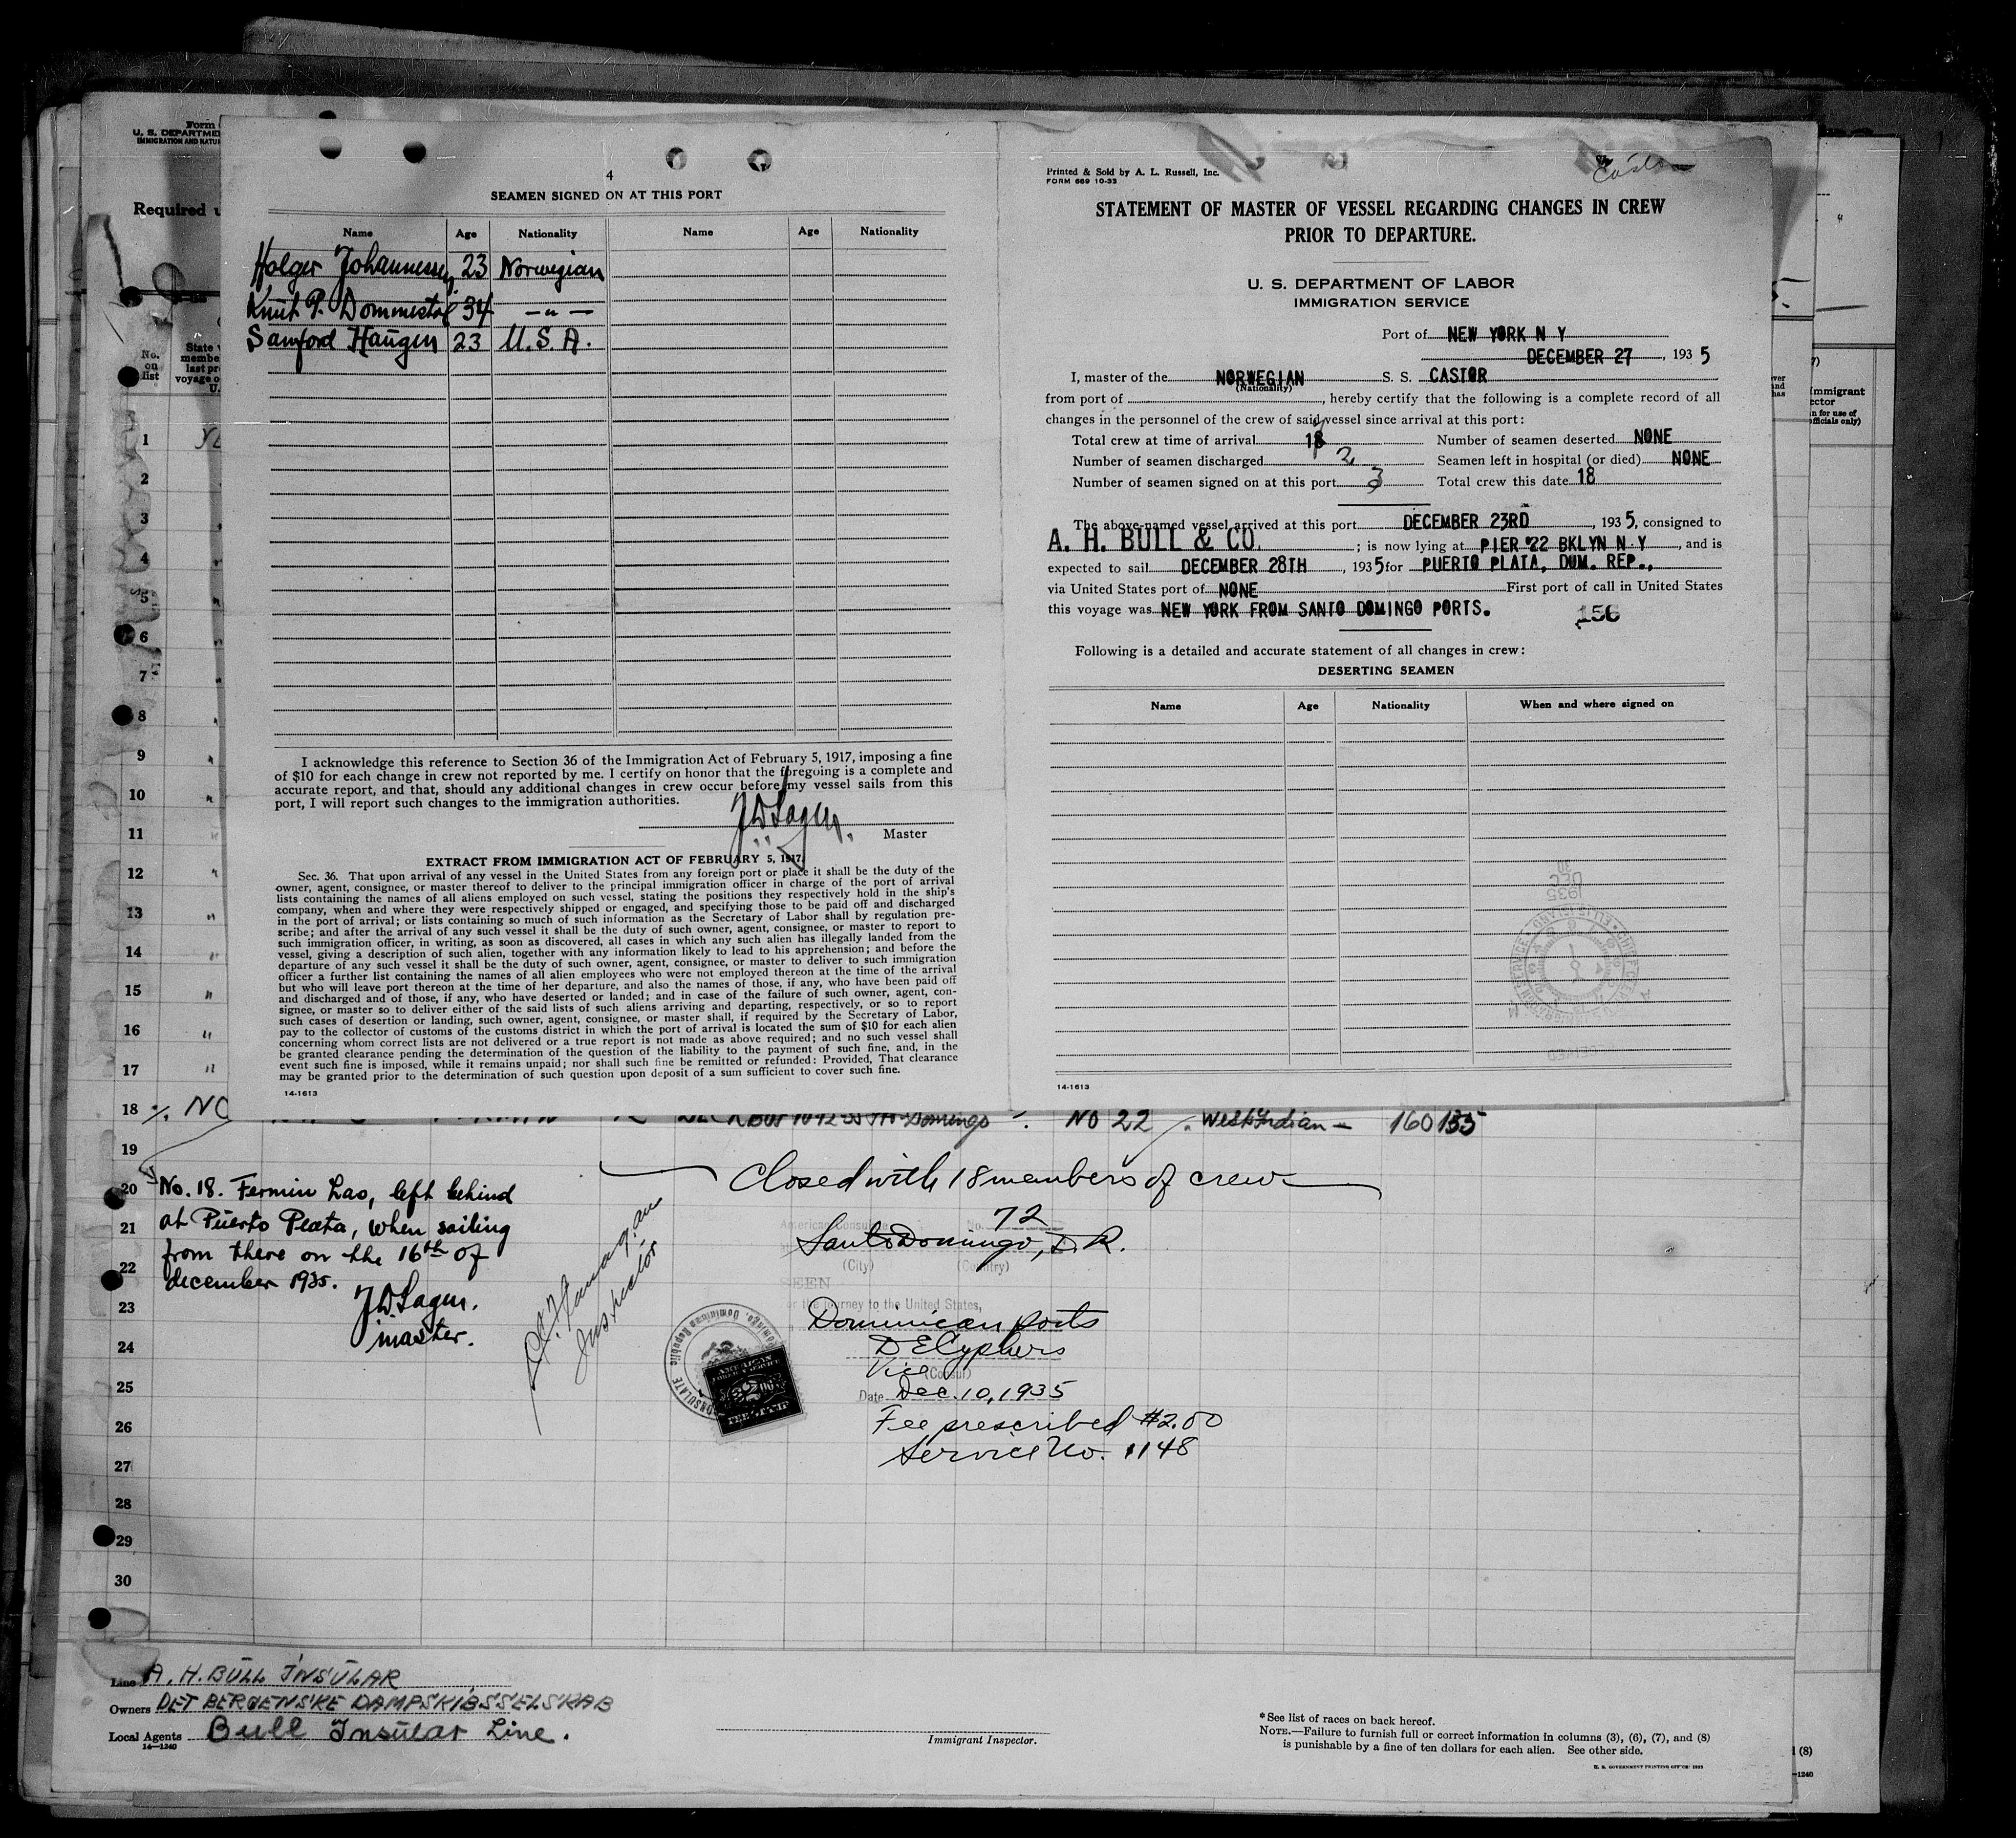 4
SEAMEN SIGNED ON AT THIS PORT
Name Age Nationality Name Age Nationality
Holger Johannessen 23 Norwegian
Knut P. 34 — " —
Sanford Haugen 23 U.S.A.
I acknowledge this reference to Section 36 of the Immigration Act of February 5, 1917, imposing a fine
of $10 for each change in crew not reported by me. I certify on honor that the foregoing is a complete and
accurate report, and that, should any additional changes in crew occur before my vessel sails from this
port, I will report such changes to the immigration authorities.
Master
EXTRACT FROM IMMIGRATION ACT OF FEBRUARY 5, 1917.
Sec. 36. That upon arrival of any vessel in the United States from any foreign port or place it shall be the duty of the
owner, agent, consignee, or master thereof to deliver to the principal immigration officer in charge of the port of arrival
lists containing the names of all aliens employed on such vessel, stating the positions they respectively hold in the ship's
company, when and where they were respectively shipped or engaged, and specifying those to be paid off and discharged
in the port of arrival; or lists containing so much of such information as the Secretary of Labor shall by regulation pre-
scribe; and after the arrival of any such vessel it shall be the duty of such owner, agent, consignee, or master to report to
such immigration officer, in writing, as soon as discovered, all cases in which any such alien has illegally landed from the
vessel, giving a description of such alien, together with any information likely to lead to his apprehension; and before the
departure of any such vessel it shall be the duty of such owner, agent, consignee, or master to deliver to such immigration
officer a further list containing the names of all alien employees who were not employed thereon at the time of the arrival
but who will leave port thereon at the time of her departure, and also the names of those, if any, who have been paid off
and discharged and of those, if any, who have deserted or landed; and in case of the failure of such owner, agent, con-
signee, or master so to deliver either of the said lists of such aliens arriving and departing, respectively, or so to report
such cases of desertion or landing, such owner, agent, consignee, or master shall, if required by the Secretary of Labor,
pay to the collector of customs of the customs district in which the port of arrival is located the sum of $10 for each alien
concerning whom correct lists are not delivered or a true report is not made as above required; and no such vessel shall
be granted clearance pending the determination of the question of the liability to the payment of such fine, and, in the
event such fine is imposed, while it remains unpaid; nor shall such fine be remitted or refunded: Provided, That clearance
may be granted prior to the determination of such question upon deposit of a sum sufficient to cover such fine.
14-1613
Castor
Printed & Sold by A. L. Russell, Inc.
FORM 689 10-33
STATEMENT OF MASTER OF VESSEL REGARDING CHANGES IN CREW
PRIOR TO DEPARTURE.
U. S. DEPARTMENT OF LABOR
IMMIGRATION SERVICE
Port of NEW YORK N Y
DECEMBER 27, 1935
I, master of the NORWEGIAN S. S. CASTOR
(Nationality)
from port of , hereby certify that the following is a complete record of all
changes in the personnel of the crew of said vessel since arrival at this port:
Total crew at time of arrival Number of seamen deserted NONE
Number of seamen discharged 2 Seamen left in hospital (or died) NONE
Number of seamen signed on at this port 3 Total crew this date 18
The above-named vessel arrived at this port DECEMBER 23RD, 1935, consigned to
A. H. BULL & CO. ; is now lying at PIER #22 BKLYN N Y, and is
expected to sail DECEMBER 28TH, 1935 for PUERTO PLATA, DOM. REP.,
via United States port of NONE First port of call in United States
this voyage was NEW YORK FROM SANTO DOMINGO PORTS.
156
Following is a detailed and accurate statement of all changes in crew:
DESERTING SEAMEN
Name Age Nationality When and where signed on
1935
DEC
30
14-1613
Form
U. S. DEPARTME
IMMIGRATION AND NATU
Required u
No.
on
list
State
membe
last pr
voyage o
U.
1
2
3
4
5
6
7
8
9
10
11
12
13
14
15
16
17
18 NO Domingo NO 22 West Indian 160 135
19
20
21
22
23
24
25
26
27
28
29
30
Immigrant
ector
n for use of
officials only)
No. 18. Fermin Lao, left behind
at Puerto Plata, when sailing
from there on the 16th of
december 1935.
master.
Inspector
Closed with 18 members of crew
American Consulate No. 72
Santo Domingo, D. R.
(City) (Country)
SEEN
or the journey to the United States,
Dominican ports
Vice (Consul)
Date Dec. 10, 1935
Fee prescribed $2.00
Service No. 1148
Line A. H. BULL INSULAR
Owners DET BERGENSKE DAMPSKIBSSELSKAB
Local Agents Bull Insular Line.
14-1240
Immigrant Inspector.
*See list of races on back hereof.
NOTE.—Failure to furnish full or correct information in columns (3), (6), (7), and (8)
is punishable by a fine of ten dollars for each alien. See other side.
(8)
-1240